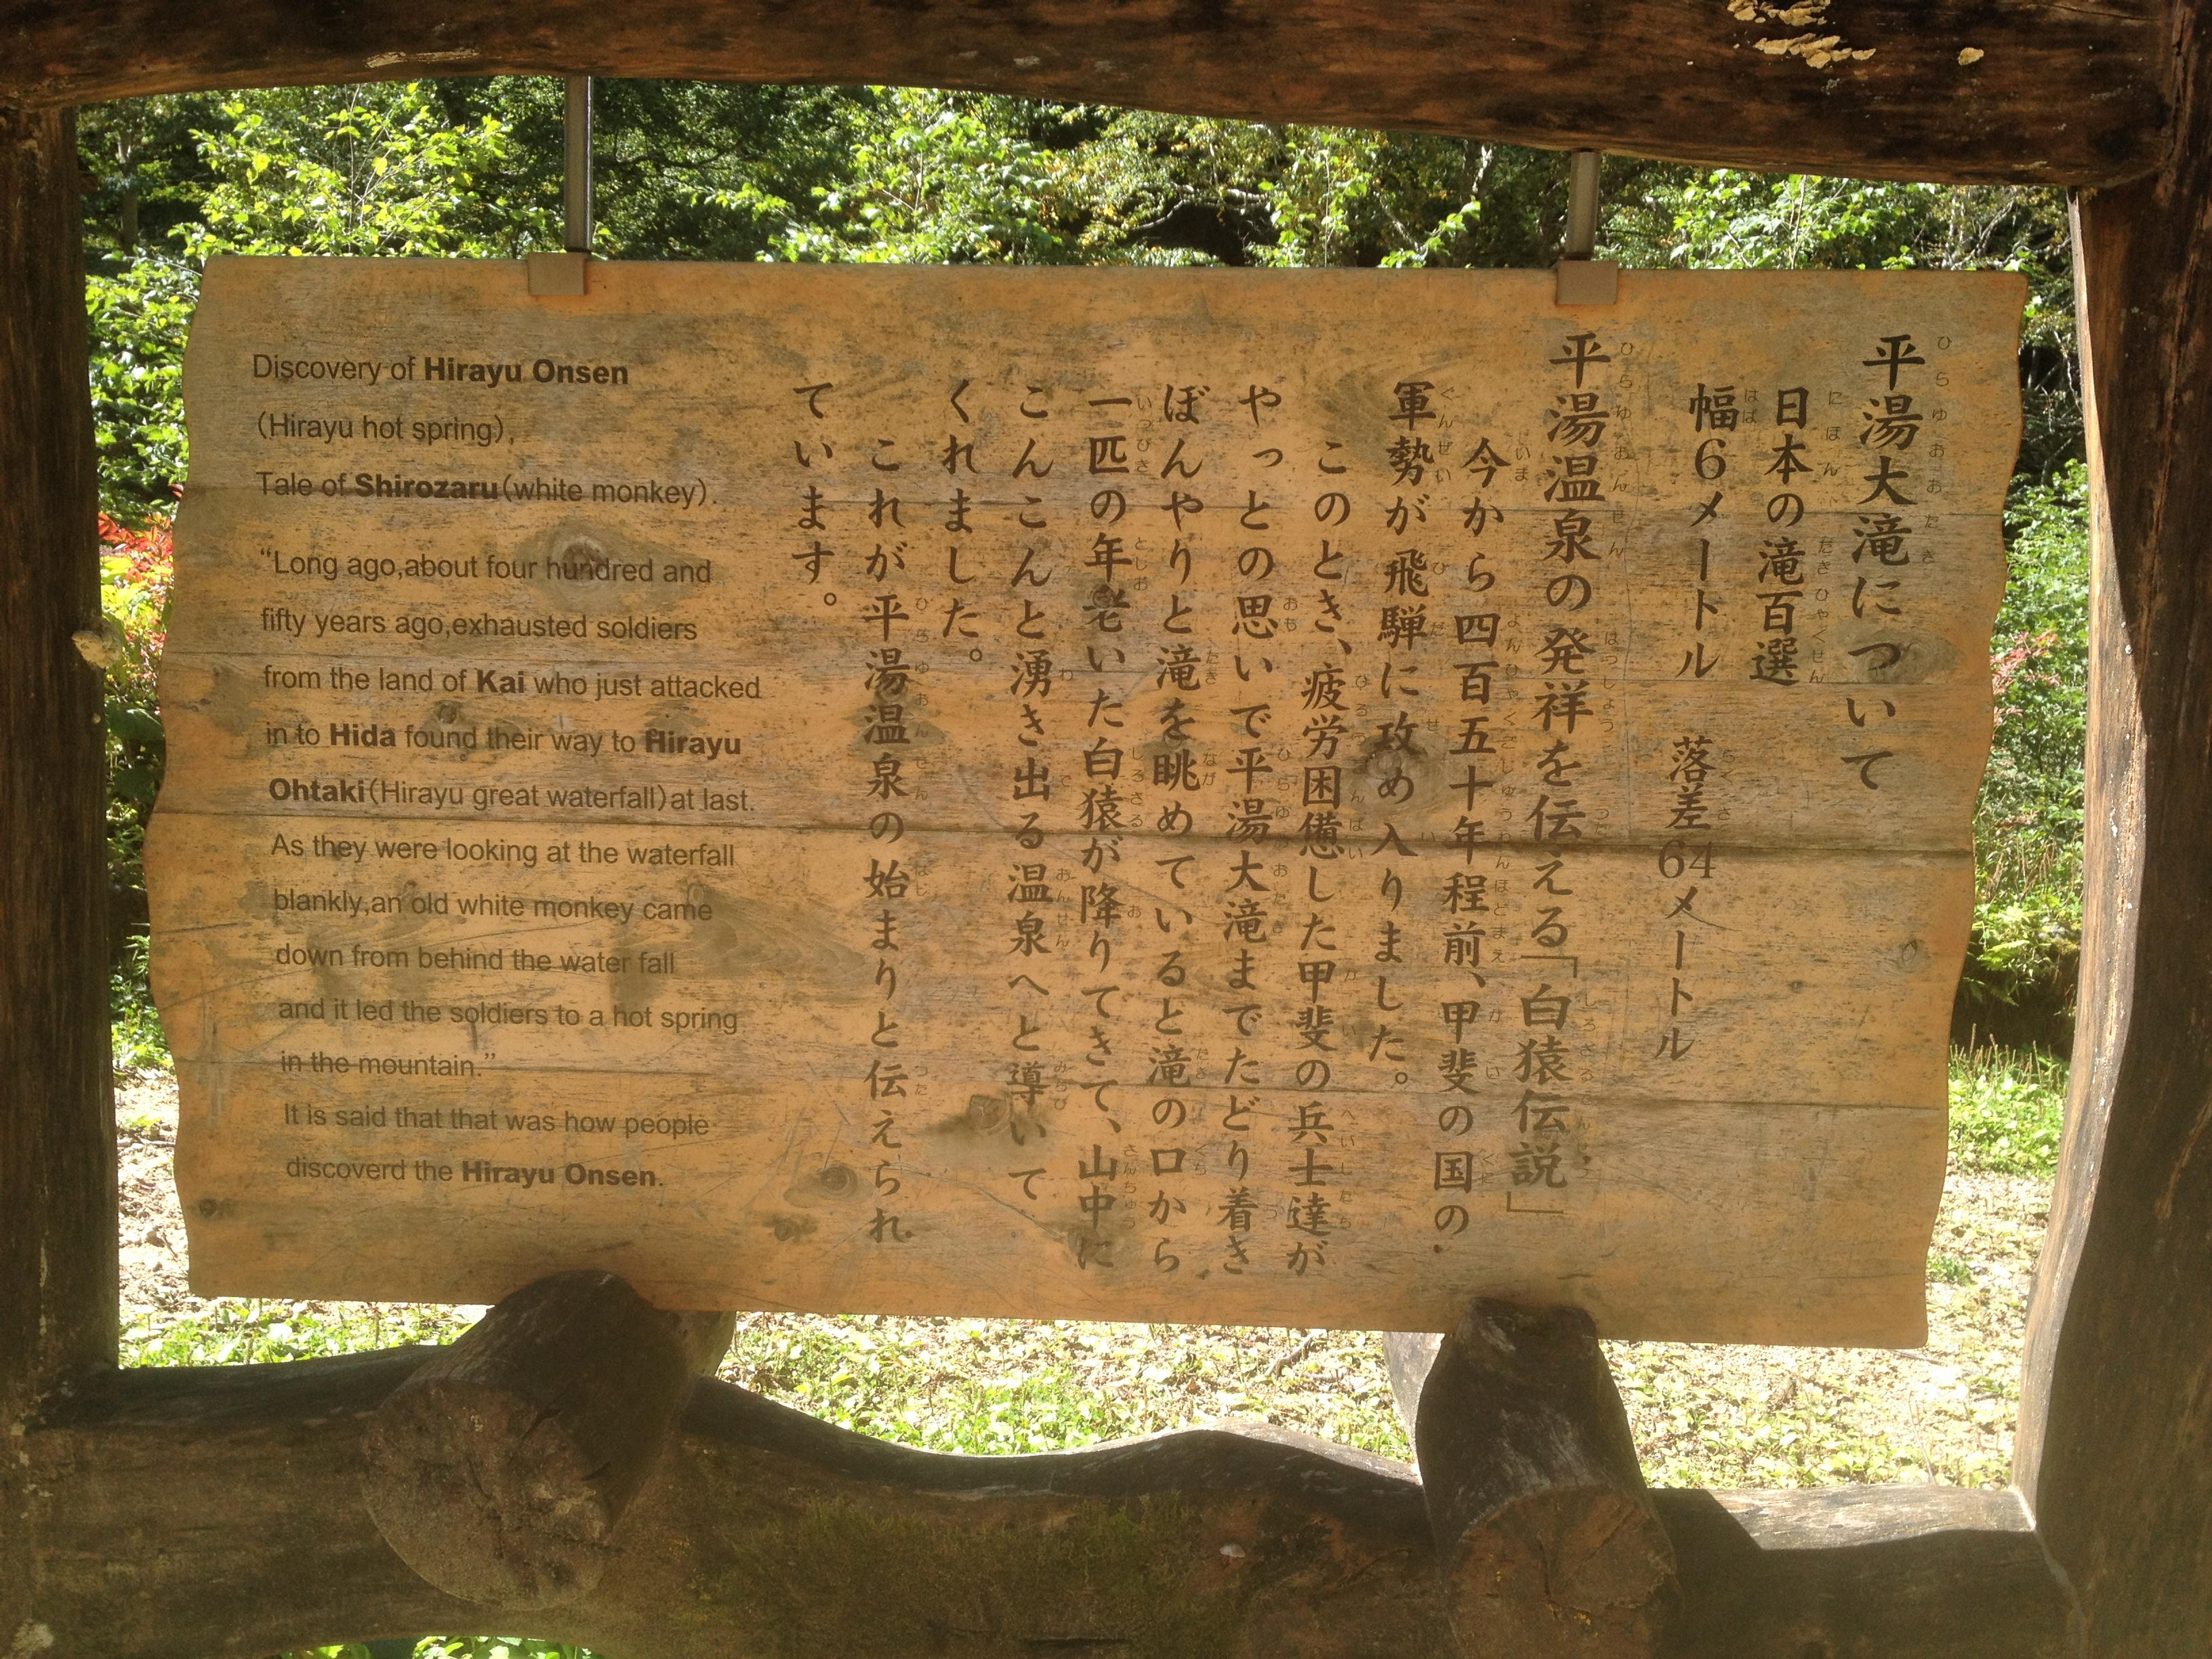 平湯大滝について
日本の滝百選
幅6メートル　落差64メートル
平湯温泉の発祥を伝える「白猿伝説」
今から四百五十年程前、甲斐の国の
軍勢が飛騨に攻め入りました。
このとき、疲労困憊した甲斐の兵士達が
やっとの思いで平湯大滝までたどり着き
ぼんやりと滝を眺めていると滝の口から
一匹の年老いた白猿が降りてきて、山中に
こんこんと湧き出る温泉へと導いて
くれました。
これが平湯温泉の始まりと伝えられ
ています。
Discovery of Hirayu Onsen
(Hirayu hot spring),
Tale of Shirozaru(white monkey).
“Long ago,about four hundred and
fifty years ago,exhausted soldiers
from the land of Kai who just attacked
in to Hida found their way to Hirayu
Ohtaki(Hirayu great waterfall)at last.
As they were looking at the waterfall
blankly,an old white monkey came
down from behind the water fall
and it led the soldiers to a hot spring
in the mountain.”
It is said that that was how people
discoverd the Hirayu Onsen.